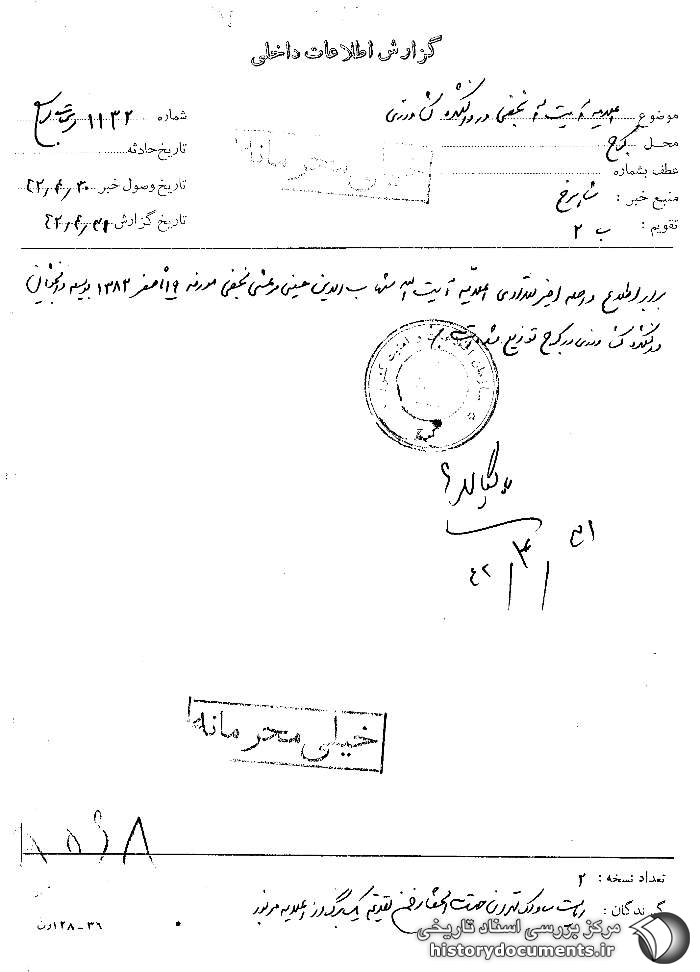 گزارش اطلاعات داخلی
موضوع اعلامیه آیت اله نجفی در دانشکده کشاورزی
شماره ۱۱۳۲
محل کرج
تاریخ حادثه
عطف بشماره
خیلی محرمانه
تاریخ وصول خبر ۴۲٫۴٫۳۰
منبع خبر :
تاریخ گزارش ۴۲٫۴٫۳۱
تقویم : ب ۲
برابر اطلاع واصله اخیر تعدادی اعلامیه آیت اله شهاب الدین حسینی مرعشی نجفی مورخه ۱۹ صفر ۱۳۸۳ بوسیله دانشجویان
دانشکده کشاورزی در کرج توزیع شده است
کرج
۳۱/۴/۴۲
خیلی محرمانه
تعداد نسخه : ۲
گیرندگان : ریاست ساواک تهران جهت استحضار ضمن تقدیم یک برگ از اعلامیه مزبور
۳۶-۱۲۸ ون
مرکز بررسی اسناد تاریخی
historydocuments.ir